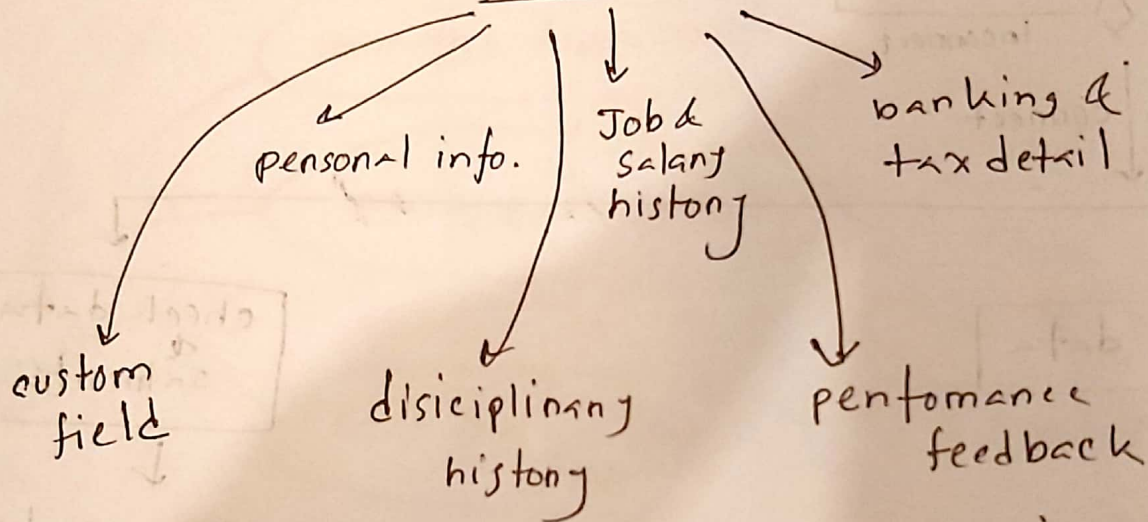 personal info.
Job &
Salary
history
banking &
tax detail
custom
field
disiciplinary
history
performance
feedback